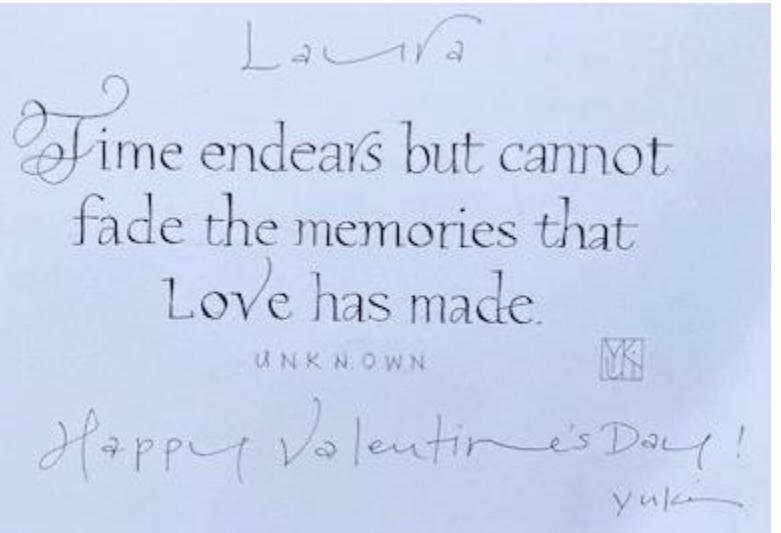 Laura
Time endears but cannot
fade the memories that
Love has made.
UNKNOWN
YUKI
Happy Valentine's Day!
yuki